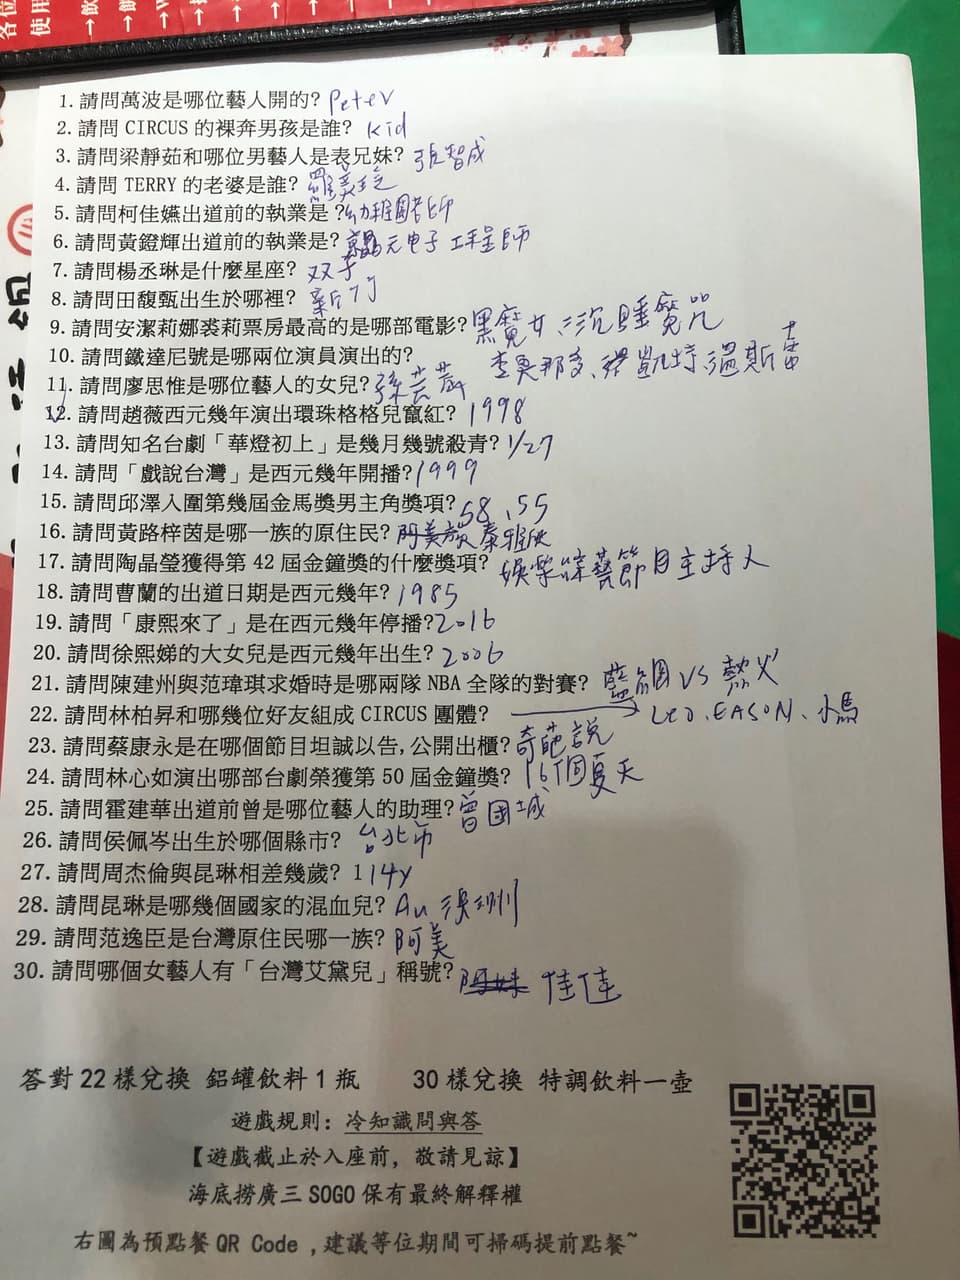 各位
使用
→飲
→
→
→
→
1. 請問萬波是哪位藝人開的? Peter
2. 請問 CIRCUS 的裸奔男孩是誰? Kid
3. 請問梁靜茹和哪位男藝人是表兄妹? 張智成
4. 請問 TERRY 的老婆是誰?
5. 請問柯佳嬿出道前的執業是? 幼稚園老師
6. 請問黃鐙輝出道前的執業是? 晶元电子工程師
7. 請問楊丞琳是什麼星座? 双子
8. 請問田馥甄出生於哪裡? 新竹
9. 請問安潔莉娜裘莉票房最高的是哪部電影? 黑魔女:沉睡魔咒
10. 請問鐵達尼號是哪兩位演員演出的? 李奧那多、凱特.溫斯蕾
11. 請問廖思惟是哪位藝人的女兒? 孫芸芸
12. 請問趙薇西元幾年演出環珠格格兒竄紅? 1998
13. 請問知名台劇「華燈初上」是幾月幾號殺青? 1/27
14. 請問「戲說台灣」是西元幾年開播? 1999
15. 請問邱澤入圍第幾屆金馬獎男主角獎項? 58、55
16. 請問黃路梓茵是哪一族的原住民? 阿美族 泰雅族
17. 請問陶晶瑩獲得第 42 屆金鐘獎的什麼獎項? 娛樂綜藝節目主持人
18. 請問曹蘭的出道日期是西元幾年? 1985
19. 請問「康熙來了」是在西元幾年停播? 2016
20. 請問徐熙娣的大女兒是西元幾年出生? 2006
21. 請問陳建州與范瑋琪求婚時是哪兩隊 NBA 全隊的對賽? 籃網 VS 熱火
22. 請問林柏昇和哪幾位好友組成 CIRCUS 團體? → Leo、EASON、小馬
23. 請問蔡康永是在哪個節目坦誠以告,公開出櫃? 奇葩說
24. 請問林心如演出哪部台劇榮獲第 50 屆金鐘獎? 16個夏天
25. 請問霍建華出道前曾是哪位藝人的助理? 曾國城
26. 請問侯佩岑出生於哪個縣市? 台北市
27. 請問周杰倫與昆琳相差幾歲? 1 14y
28. 請問昆琳是哪幾個國家的混血兒? Au 澳洲
29. 請問范逸臣是台灣原住民哪一族? 阿美
30. 請問哪個女藝人有「台灣艾黛兒」稱號? 阿妹 佳佳
答對 22 樣兌換 鋁罐飲料 1 瓶 30 樣兌換 特調飲料一壺
遊戲規則: 冷知識問與答
【遊戲截止於入座前, 敬請見諒】
海底撈廣三 SOGO 保有最終解釋權
右圖為預點餐 QR Code ,建議等位期間可掃碼提前點餐~